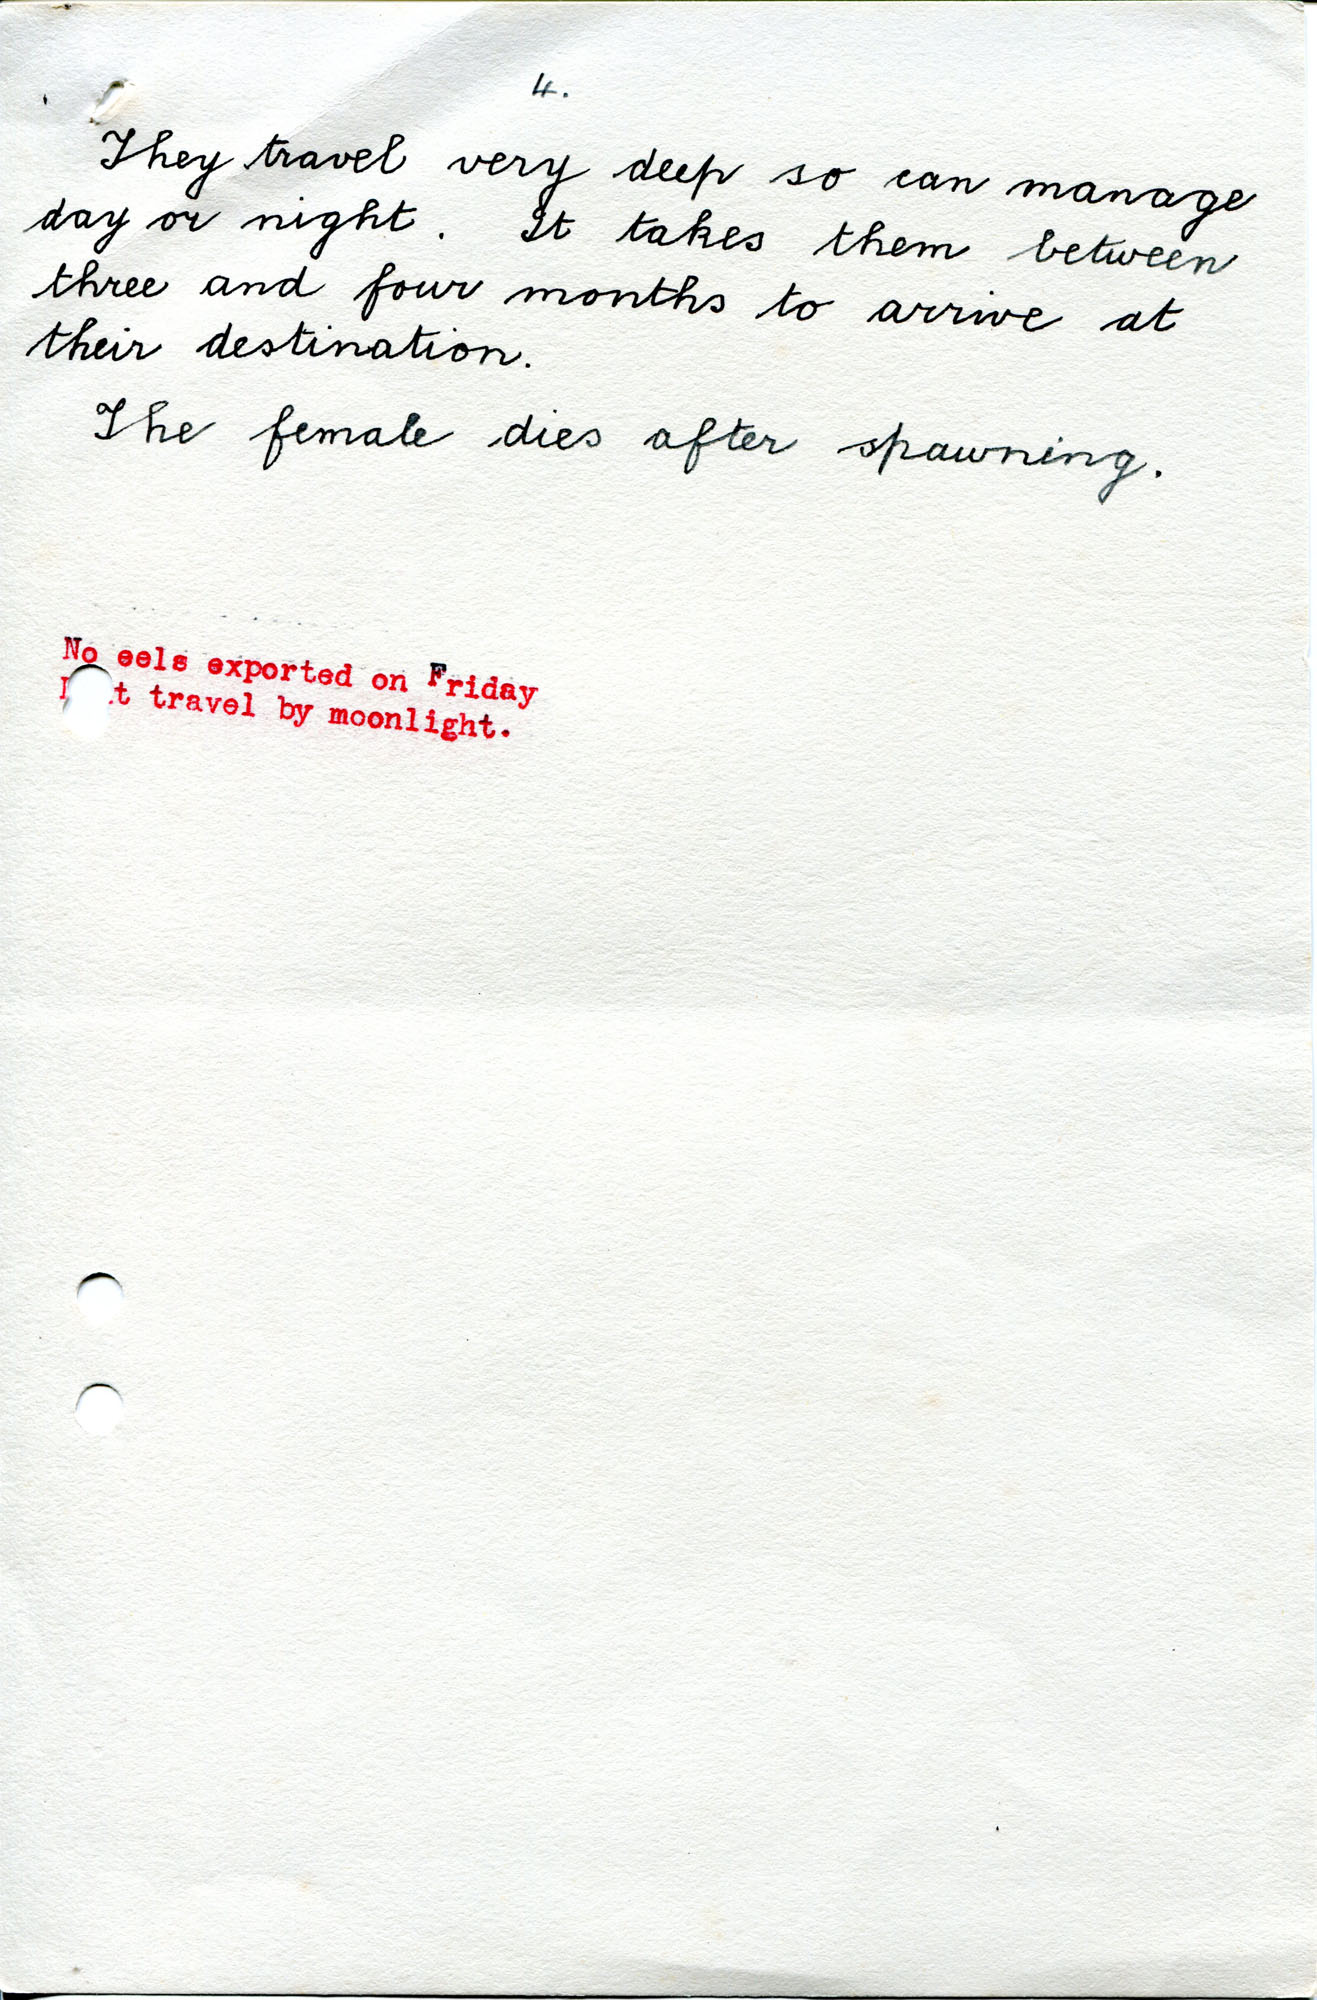 4.
They travel very deep so can manage
day or night. It takes them between
three and four months to arrive at
their destination.
The female dies after spawning.
No eels exported on Friday
travel by moonlight.